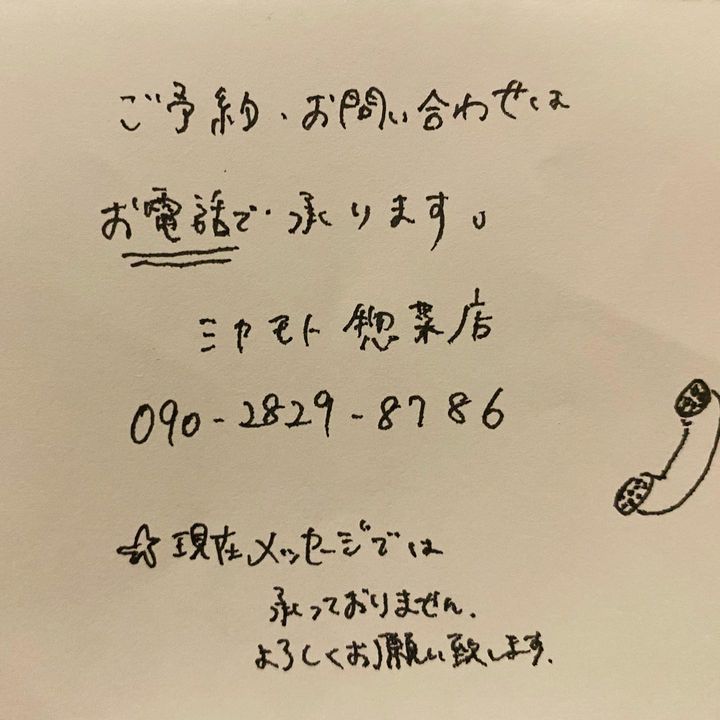 ご予約・お問い合わせは
お電話で承ります。
ミヤモト惣菜店
090-2829-8786
☆現在メッセージでは
承っておりません。
よろしくお願い致します。